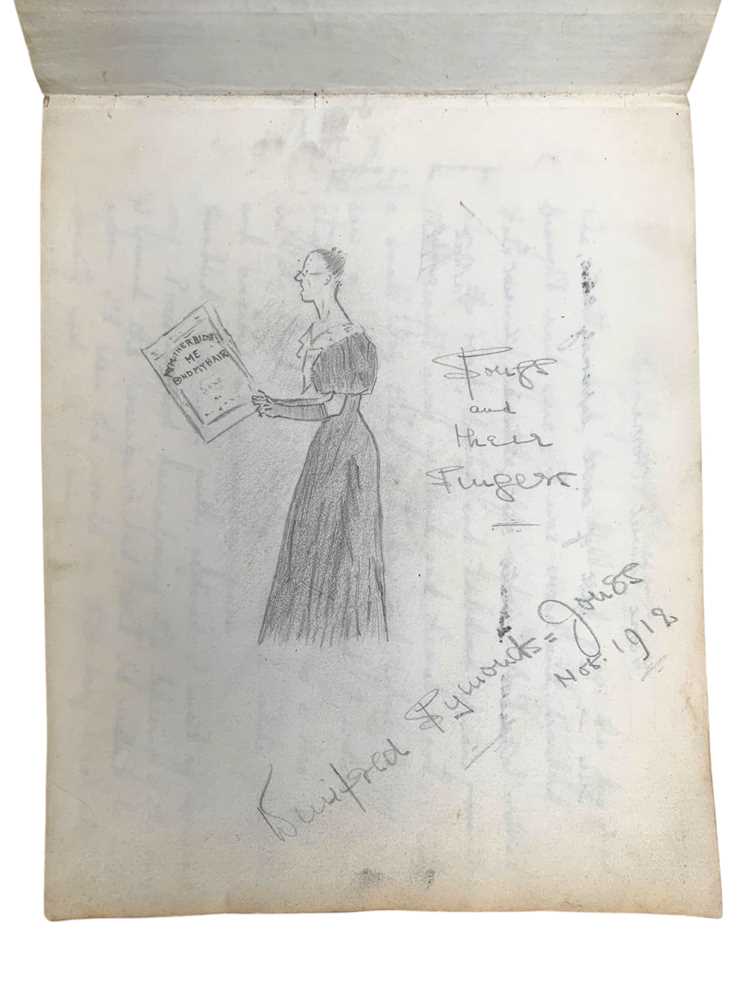 MY MOTHER BIDS
ME
BIND MY HAIR
Songs
and
their
Singers
Winifred Symonds=Jones
Nov. 1918